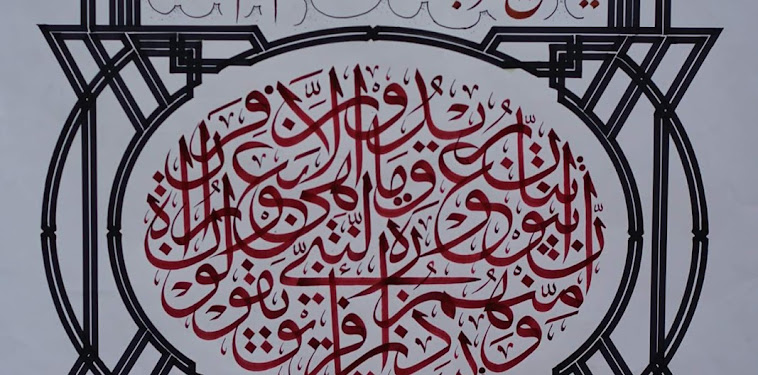 فريق منهم النبي يقولون إن بيوتنا عورة وما هي بعورة إن يريدون إلا فرارا